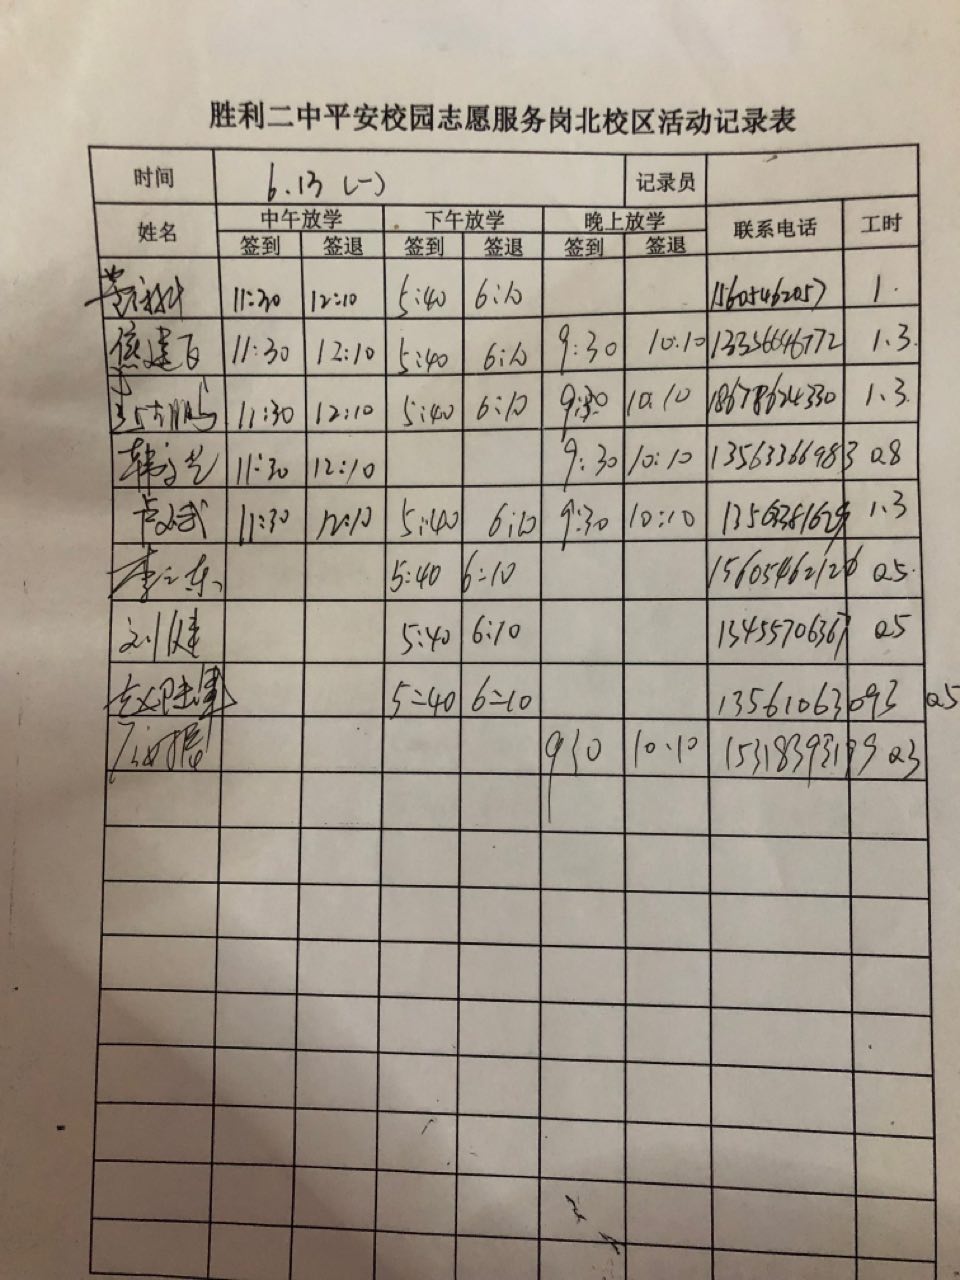 胜利二中平安校园志愿服务岗北校区活动记录表
时间 6.13 (一) 记录员
姓名 中午放学 下午放学 晚上放学 联系电话 工时
签到 签退 签到 签退 签到 签退
11:30 12:10 5:40 6:10 15605462057 1.
11:30 12:10 5:40 6:10 9:30 10:10 13356646772 1.3
11:30 12:10 5:40 6:10 9:30 10:10 18678624330 1.3
韩文艺 11:30 12:10 9:30 10:10 13563366983 0.8
11:30 12:10 5:40 6:10 9:30 10:10 1.3
李之东 5:40 6:10 15605462126 0.5
刘健 5:40 6:10 13455706367 0.5
5:40 6:10 13561063093 0.5
930 10:10 15318393199 0.3